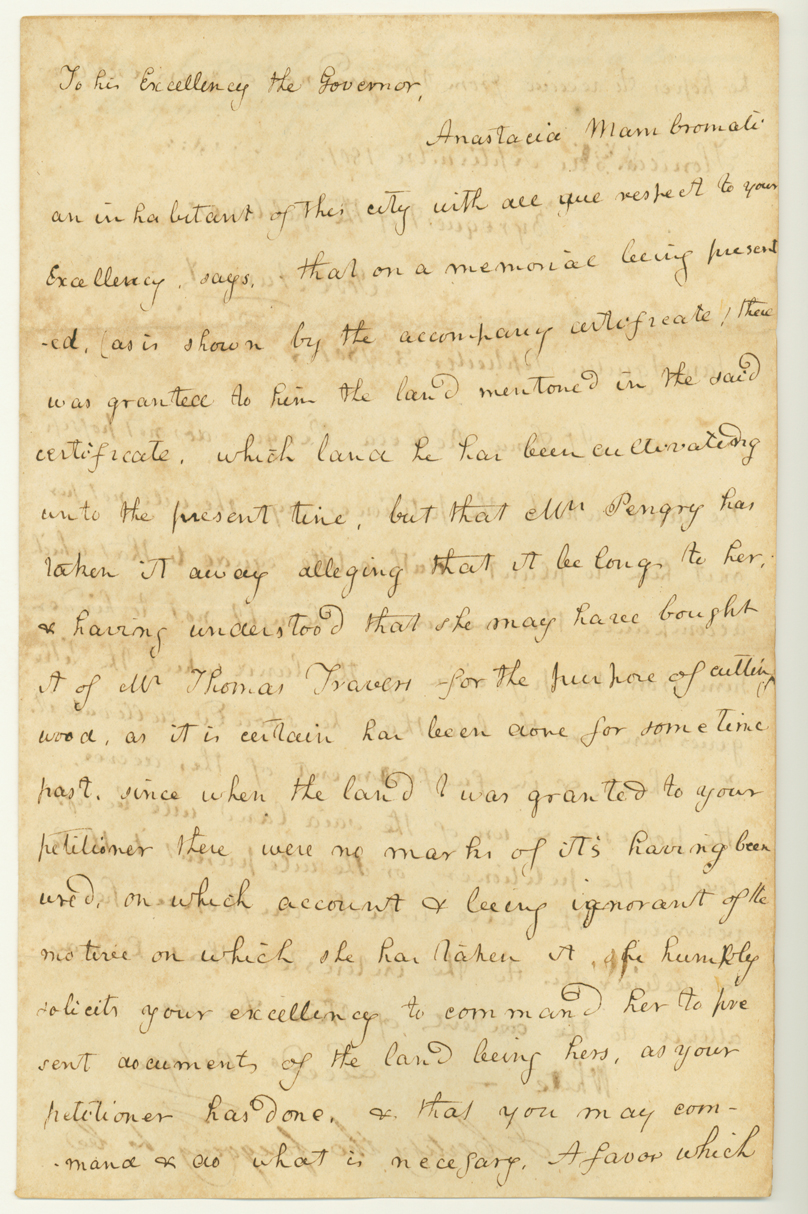 To his Excellency the Governor,
Anastacia Mambromati
an inhabitant of this city with all due respect to your
Excellency, says, that on a memorial being present
-ed, (as is shown by the accompany certificate) there
was granted to him the land mentoned in the said
certificate, which land he has been cultivating
unto the present time, but that Mrs Pengry has
taken it away alleging that it belongs to her,
& having understood that she may have bought
it of Mr Thomas Travers for the purpose of cutting
wood, as it is certain has been done for some time
past, since when the land was granted to your
petitioner there were no marks of it's having been
used, on which account & being ignorant of the
motive on which she has taken it, he humbly
solicits your excellency to command her to pre
sent documents of the land being hers, as your
petitioner has done, & that you may com-
-mand & do what is necesary. A favor which